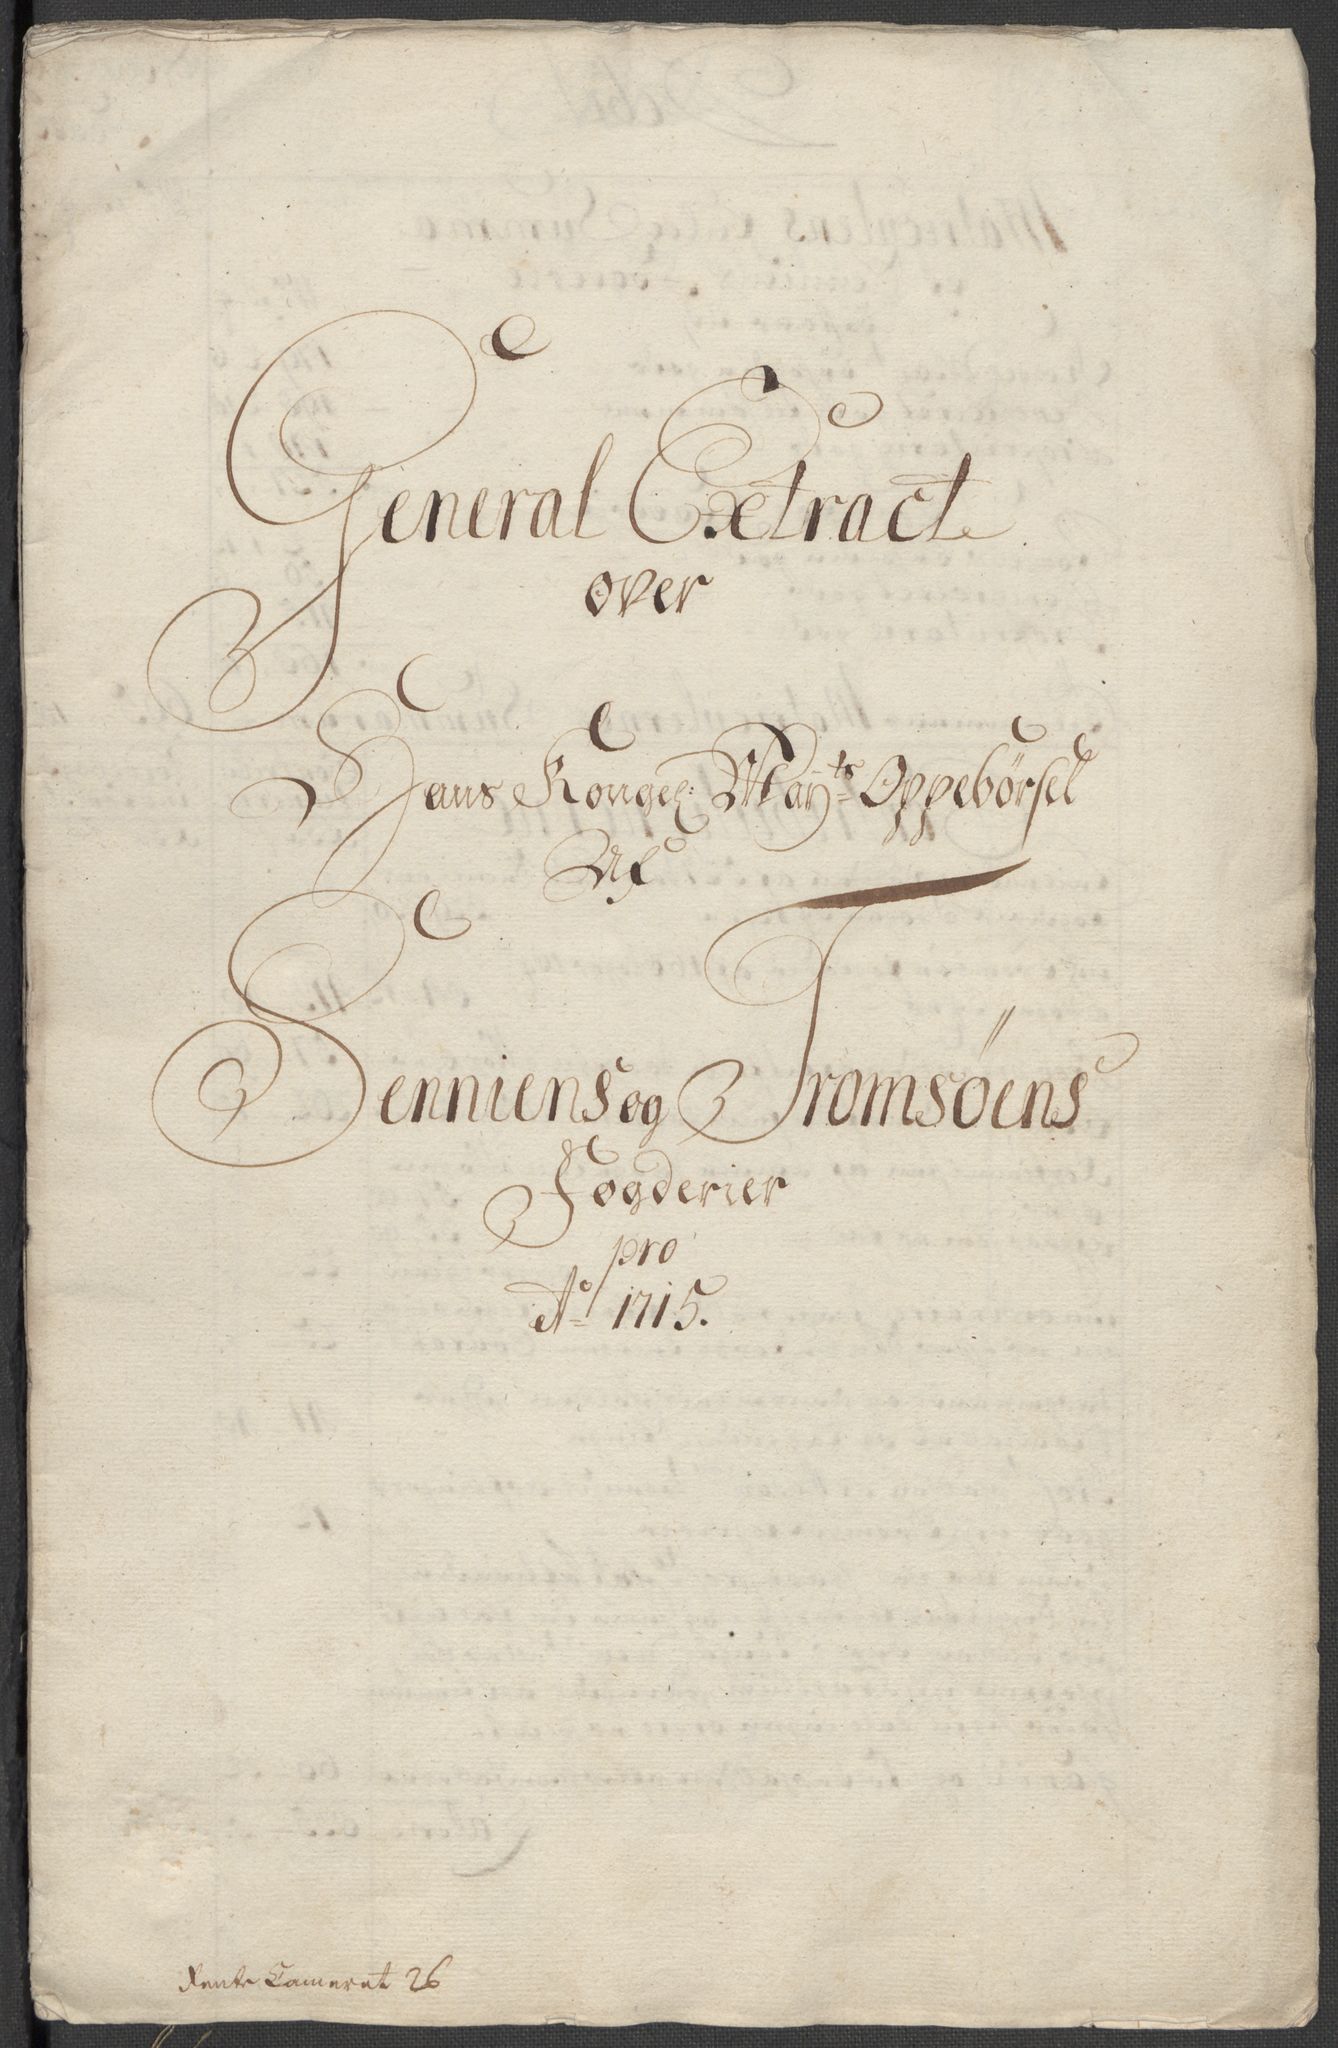 General Extract
over
Hans Kongel: May:ts Oppebørsel
Af
Senniens og Tromsøens
Fogderier
pro
Ao 1715.
Rente Cameret 26